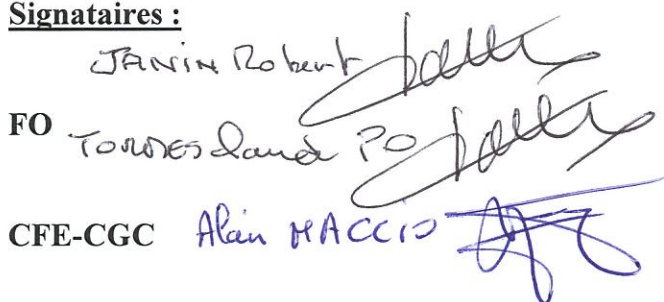 Signataires :
JANIN Robert
FO TORRES PO
CFE-CGC Alain MACCIO